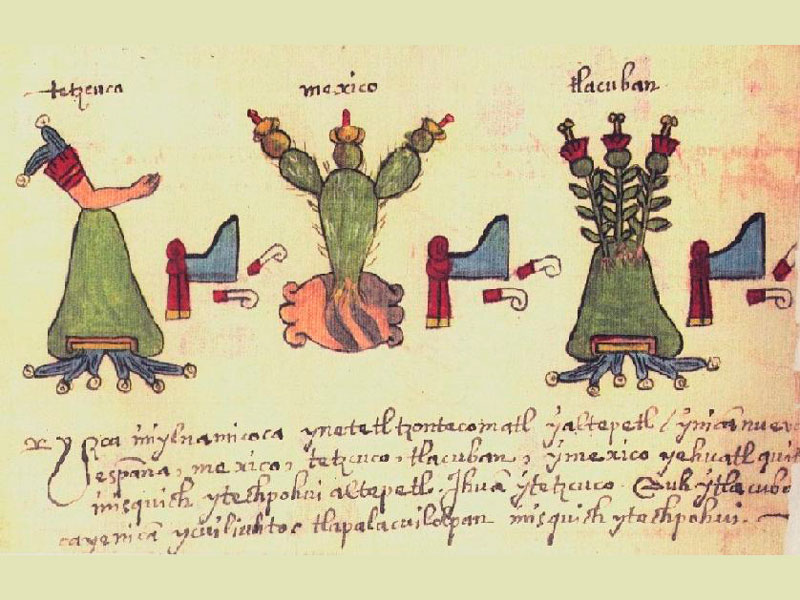 tetzcuca mexico tlacuban
Yzca ymilnamicoca ynetetl tzontecomatl yaltepetl / ynicã nueva
españa, mexico, tetzcuco, tlacuban, ymexico yehuatl quit
misquich ytechpohui altepetl. Jhuã ytetzcuco. Auh ytlacuba
cayenicã ycuiliuhtoc tlapalacuilolpan misquich ytechpohui.